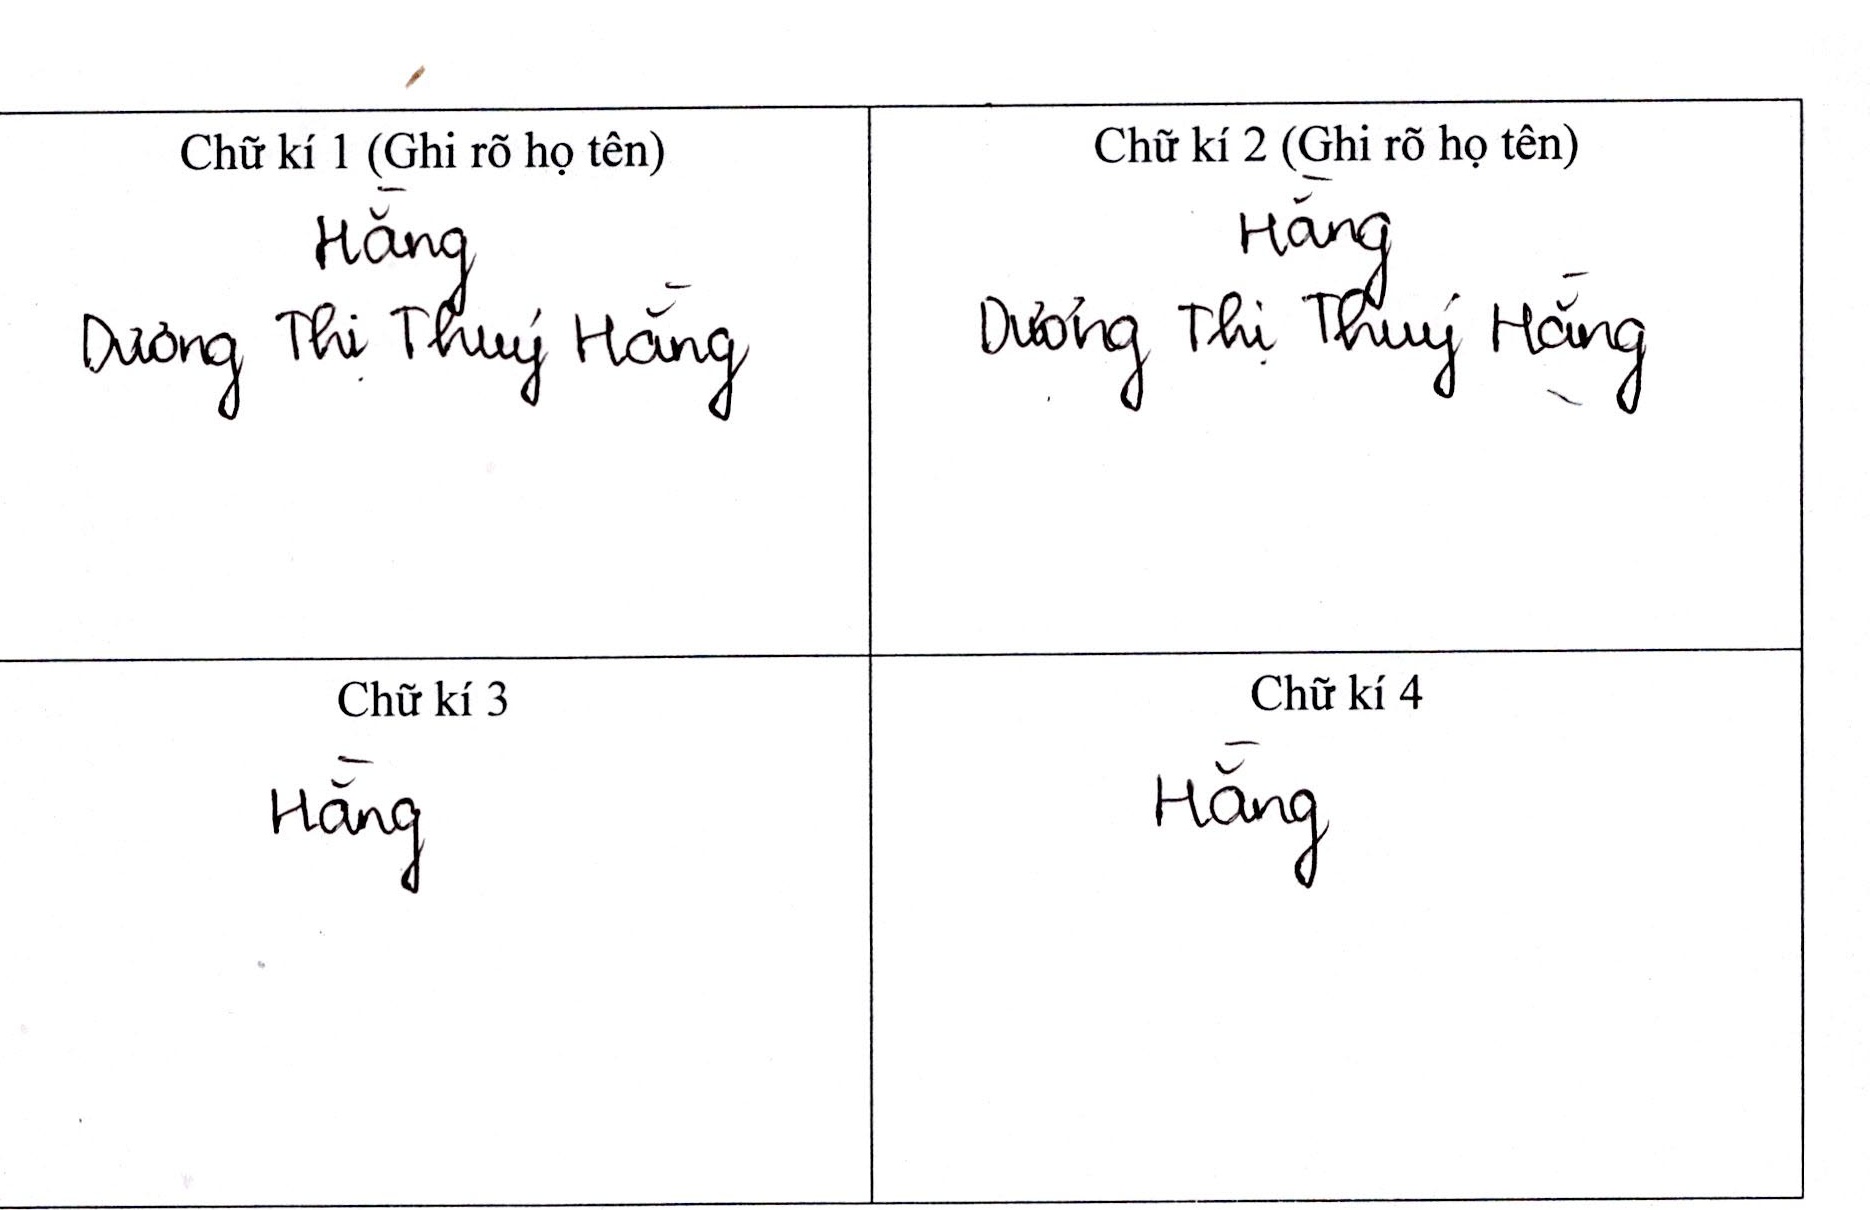 Chữ kí 1 (Ghi rõ họ tên)
Hằng
Dương Thị Thuý Hằng
Chữ kí 2 (Ghi rõ họ tên)
Hằng
Dương Thị Thuý Hằng
Chữ kí 3
Hằng
Chữ kí 4
Hằng